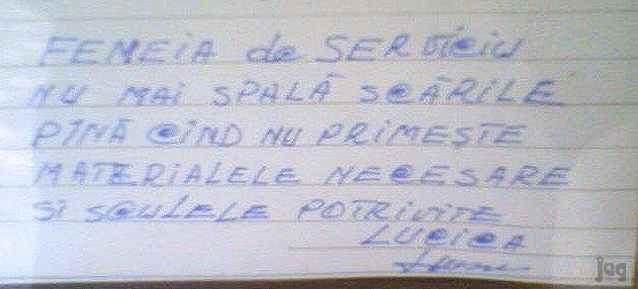 FEMEIA de SERViciu
NU MAi SPALĂ SCĂRILE
PÎNĂ CÎND NU PRIMEŞTE
MATERIALELE NECESARE
Si SCULELE POTRIVITE
LUCICA
jeg